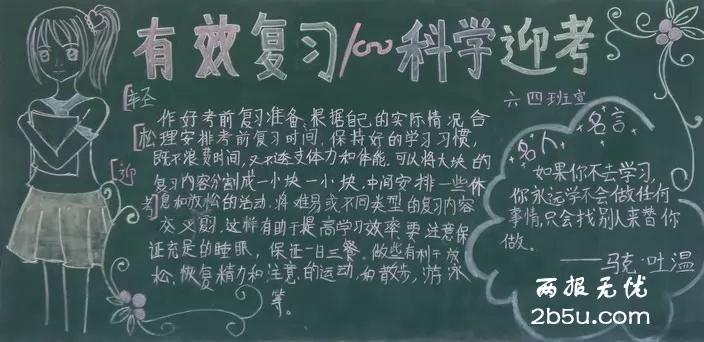 有效复习 科学迎考
六四班宣
轻松迎考
作好考前复习准备、根据自己的实际情况合
理安排考前复习时间。保持好的学习习惯,
既不浪费时间,又不透支体力和体能。可以将大块的
复习内容分割成一小块一小块,中间安排一些休
息和放松的活动。将难易或不同类型的复习内容
交叉复习,这样有助于提高学习效率。要注意保
证充足的睡眠,保证一日三餐。做些有利于放
松、恢复精力和注意的运动,如散步,游泳
等。
名人名言
如果你不去学习,
你永远学不会做任何
事情,只会找别人来替你
做。
——马克·吐温
两报无忧
2b5u.com